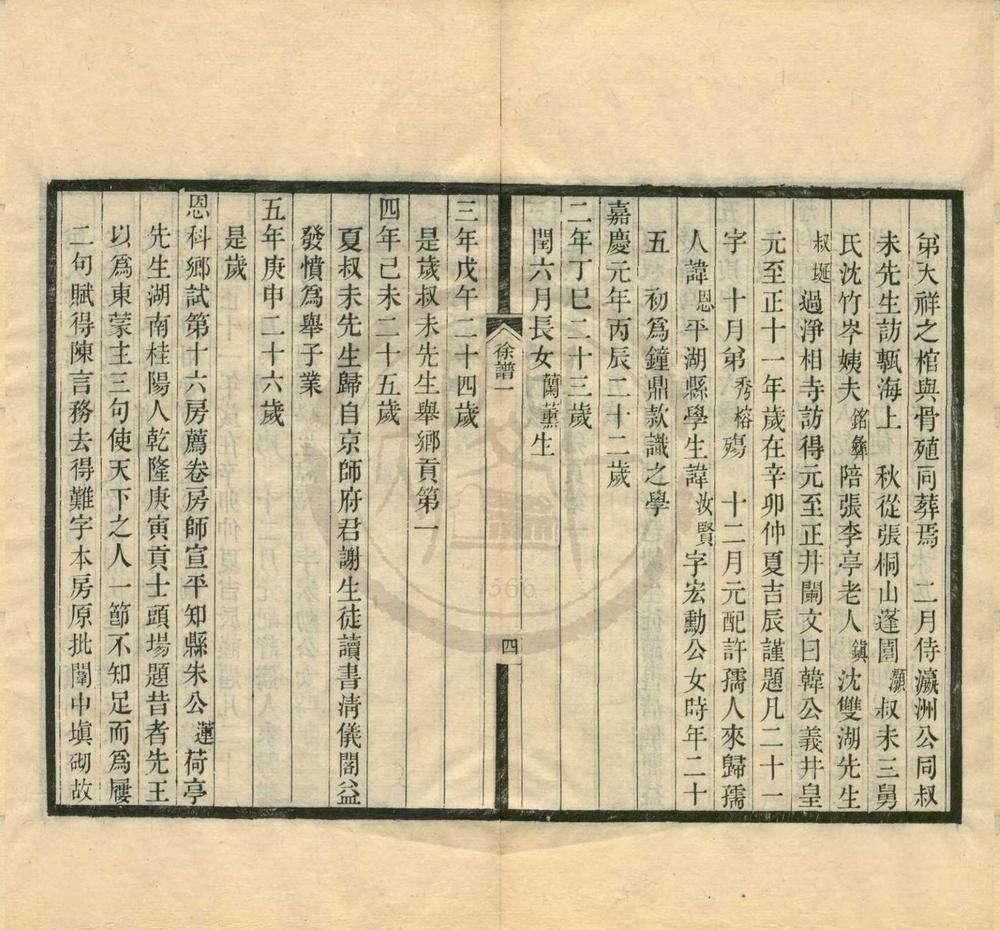 弟大祥之棺與骨殖同葬焉 二月侍瀛洲公同叔
未先生訪甎海上 秋從張桐山蓬園灝叔未三舅
氏沈竹岑姨夫銘彝陪張李亭老人鎮沈雙湖先生
叔埏過淨相寺訪得元至正井闌文曰韓公義井皇
元至正十一年歲在辛卯仲夏吉辰謹題凡二十一
字 十月弟秀榕殤 十二月元配許孺人來歸孺
人諱恩平湖縣學生諱汝賢字宏勳公女時年二十
五 初爲鐘鼎款識之學
嘉慶元年丙辰二十二歲
二年丁巳二十三歲
閏六月長女蘭薰生
徐譜一
四
三年戊午二十四歲
是歲叔未先生舉鄉貢第一
四年己未二十五歲
夏叔未先生歸自京師府君謝生徒讀書清儀閣益
發憤爲舉子業
五年庚申二十六歲
是歲
恩科鄉試第十六房薦卷房師宣平知縣朱公蓮荷亭
先生湖南桂陽人乾隆庚寅貢士頭場題昔者先王
以爲東蒙主三句使天下之人一節不知足而爲屨
二句賦得陳言務去得難字本房原批闈中塡砌故
1566